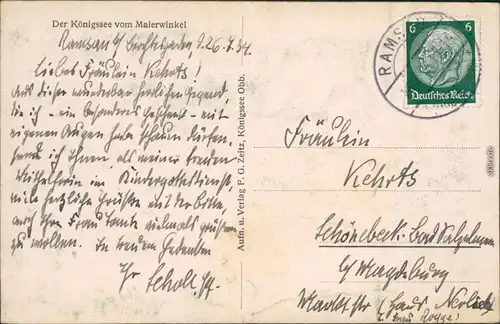 Der Königssee vom Malerwinkel
Ramsau b/ Berchtesgaden, 26.7.34.
Liebes Fräulein Kehrts!
Aus dieser wunderbar herrlichen Gegend,
die ich - ein besonderes Geschenk - mit
eigenen Augen habe schauen dürfen,
sende ich Ihnen, als meiner treuen
Mithelferin im Kindergottesdienst,
viele herzliche Grüße mit der Bitte,
auch Ihre Frau Tante vielmals grüßen
zu wollen. In treuem Gedenken
Ihr Scholl
Aufn. u. Verlag F. G. Zeitz, Königssee Obb.
RAMSAU
6 6
Deutsches Reich
Fräulein
Kehrts
Schönebeck-Bad Salzelmen
b/ Magdeburg
(Haus
b. Frau